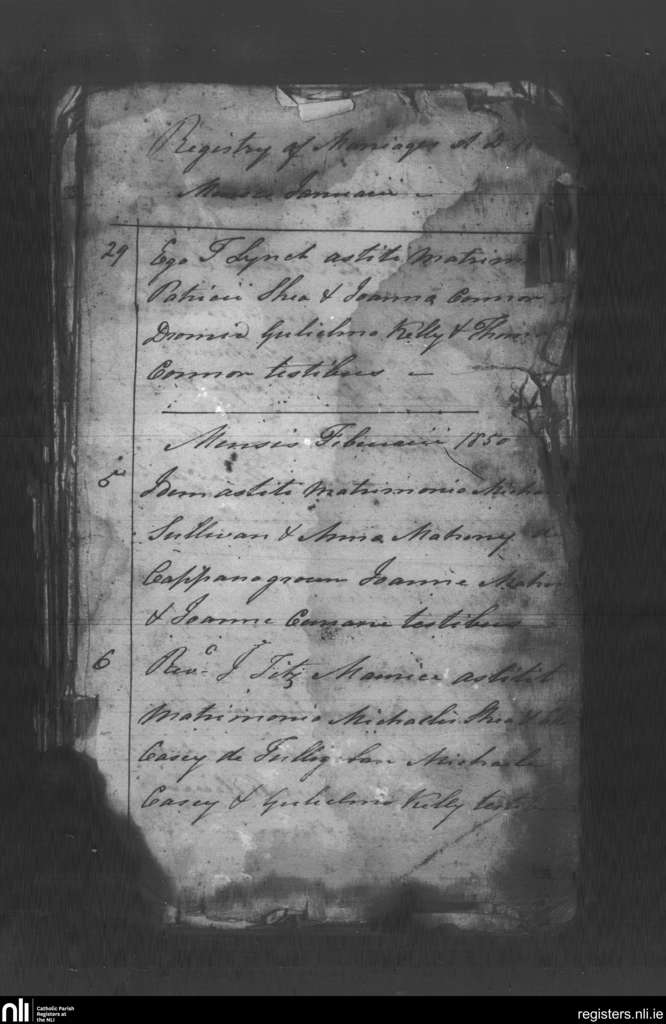 Registry of Marriages A D 18
Mensis Januarii
29 Ego T Lynch astiti Matrim
Patricii Shea & Joanna Connor
Dromid Gulielmo Kelly & Thom
Connor testibus
Mensis Februarii 1850
5 Idem astiti Matrimonio Micha
Sullivan & Anna Mahony de
Cappanagroun Joanne
& Joanne testibus
6 Revd. J Fitz Maurice astitit
Matrimonio Michaelis Shea &
Casey de Michaele
Casey & Gulielmo Kelly testib
nli Catholic Parish
Registers at
the NLI
registers.nli.ie